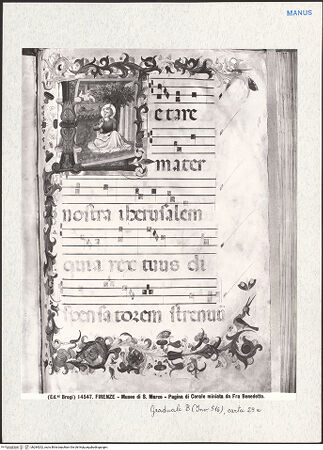 MANUS
etare
mater
nostra iherusalem
quia rex tuus di
spensatorem strenuu
(Ed.ni Brogi) 14547. FIRENZE - Museo di S. Marco - Pagina di Corale miniata da Fra Benedetto.
Graduale B (Inv. 516), carta 29 a